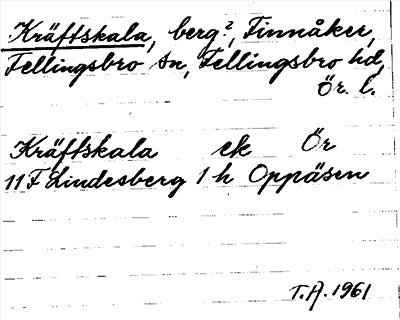 Kräftskala, berg?, Finnåker,
Fellingsbro sn, Fellingsbro hd,
Ör. l.
Kräftskala ek Ör
11 F Lindesberg 1 h Oppäsen
T.A. 1961